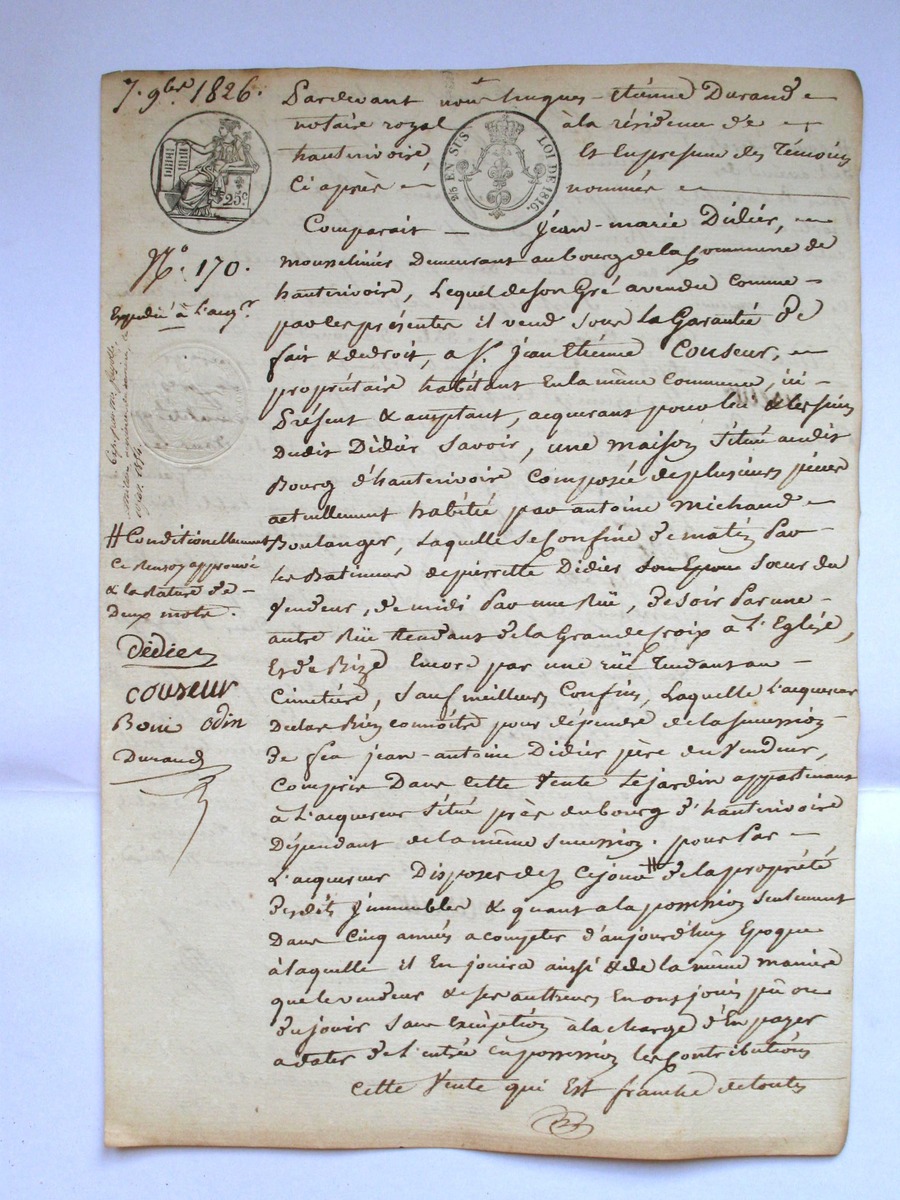 7. 9bre 1826.
25c
2/5 EN SUS LOI DE 1816.
N.o 170.
Expédié à L'acqr
#Conditionellement
Ce Renvoy approuvé
& la Rature de
Deux mots.
Dédier
couseur
Boni odin
Durand
Pardevant nous hugues-étienne Durand
notaire royal à la résidence de
hauterivoire, Et En presence des Témoins
Ci après nommés
Comparait Jean-marie Didier,
mousselinier Demeurant au bourg de la Commune de
hauterivoire, Lequel de son Gré a vendu comme
par les présentes il vend sous La Garantie De
fait & de droit, a Sr. Jean Etienne Couseur,
propriétaire habitant En la même Commune, ici
Présent & acceptant, acquérant pour lui & les siens
Dudit Didier Savoir, une maison Située audit
Bourg d'hauterivoire Composée de plusieurs pièces
actuellement habitée par antoine michaud
Boulanger, Laquelle Se Confine De matin Par
les Batiments de pierrette Didier son Epouse Sœur du
Vendeur, de midi Par une Rüe, De soir Par une
autre Rüe Tendant de la Grande Croix à L'Eglise,
Et de Bize Encore par une rüe Tendant au
Cimetière, Sauf meilleurs Confins, Laquelle L'acquereur
Declare Bien connoître pour dépendre de la succession
De feu jean-antoine Didier père du Vendeur,
Compris Dans Cette Vente Le jardin appartenant
à L'acquereur Situé près du bourg d'hauterivoire
Dépendant de la même succession. pour Par
L'acquereur Disposer dez Cejour # de la propriété
Desdits Jmmeubles & quant a la possession Seulement
Dans Cinq années a compter d'aujourd'huy Epoque
à laquelle il En jouira ainsi & de la même manière
que le vendeur & ses autheurs En ont joui pû ou
du jouir Sans Exception à la charge d'En payer
a dater de L'entrée en possession les Contributions
Cette Vente qui Est franche de toutes